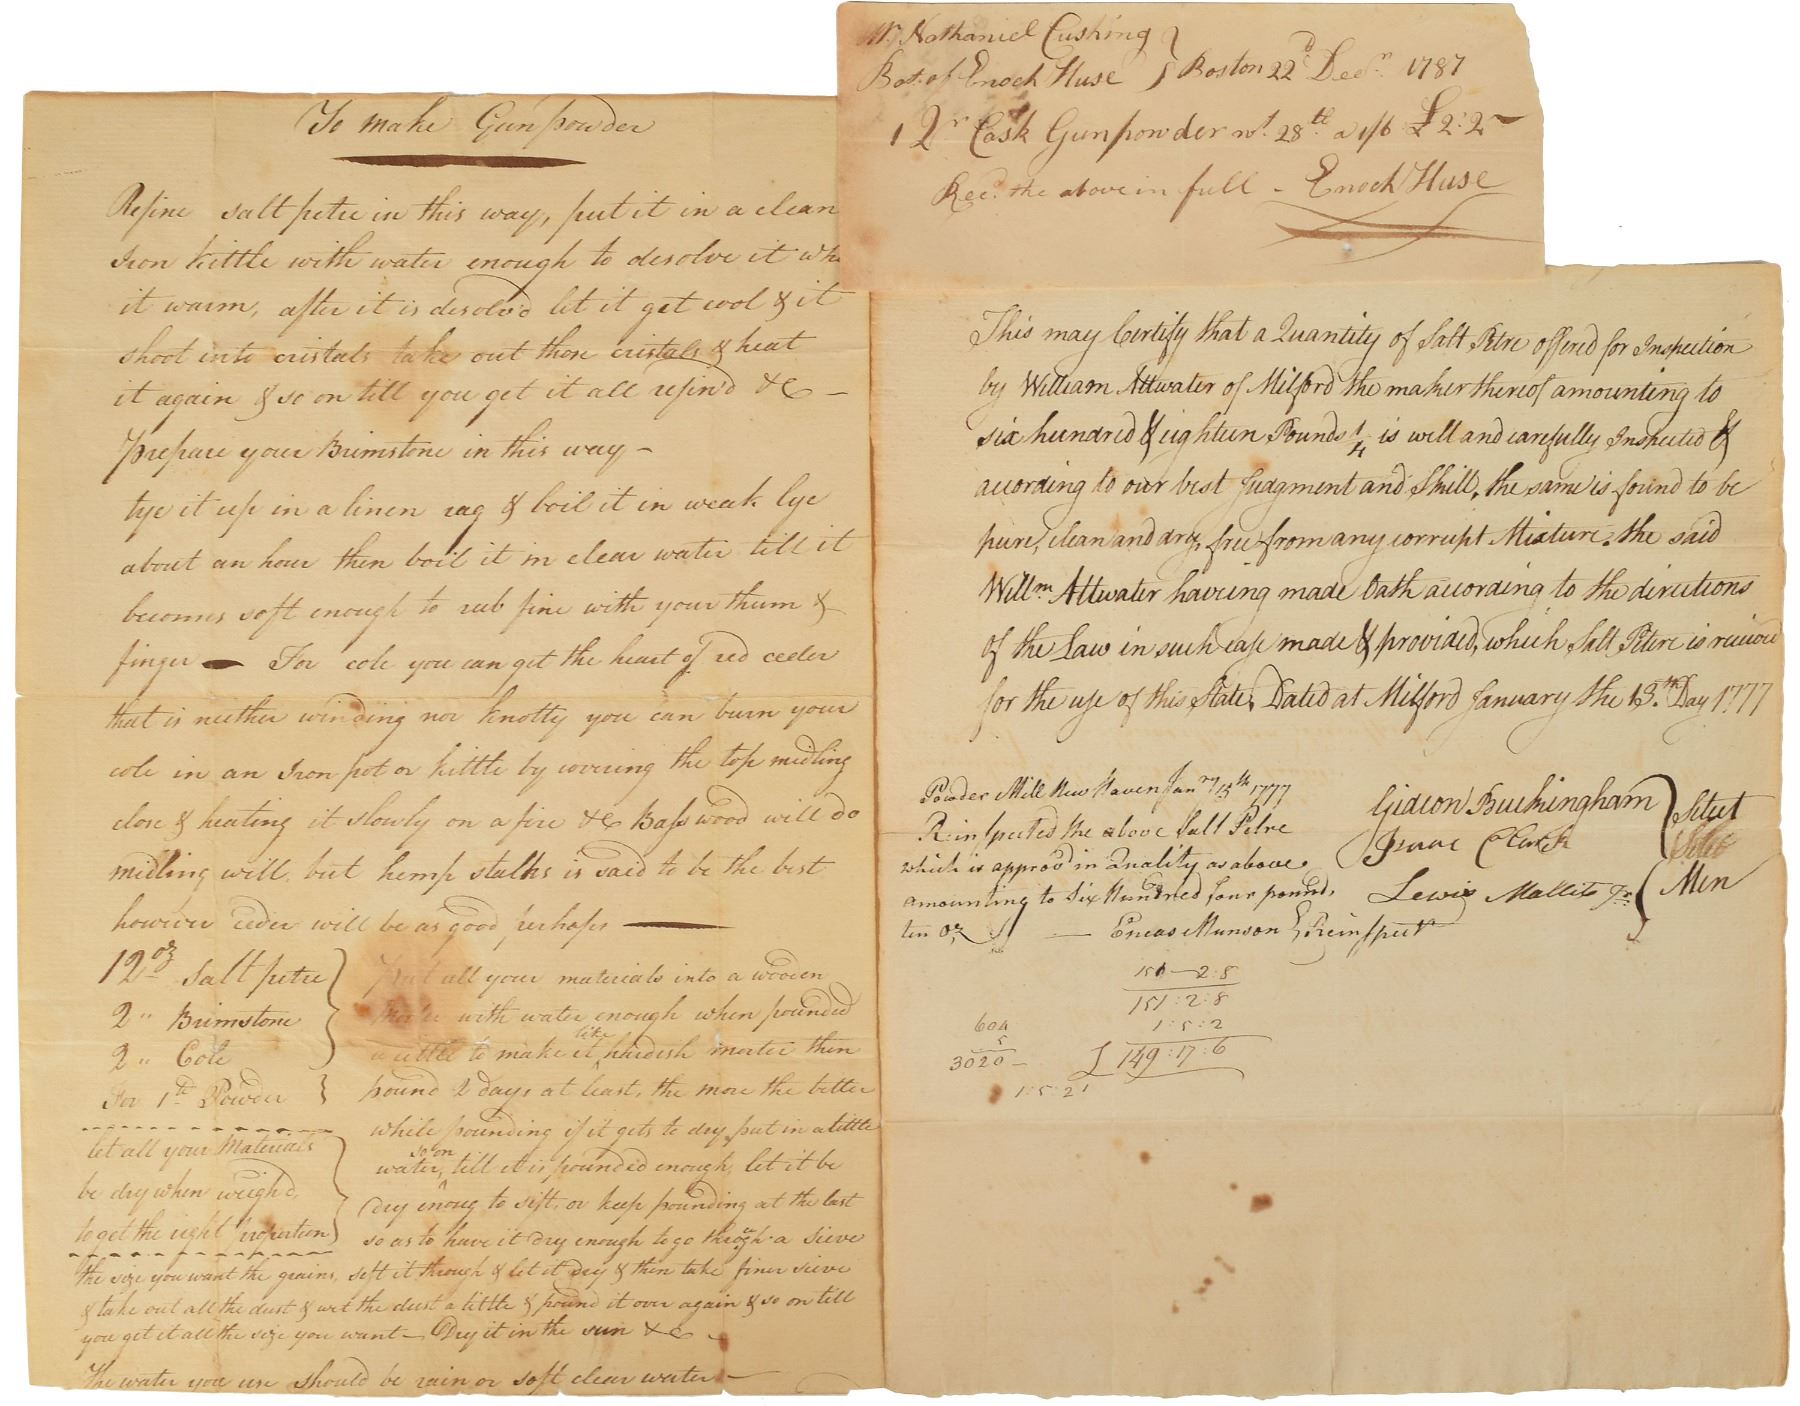 To make Gunpowder
Refine salt petre in this way, put it in a clean
Iron kittle with water enough to desolve it
it warm, after it is desolv'd let it get cool & it
shoot into cristals take out those cristals & heat
it again & so on till you get it all refin'd &c —
Prepare your Brimstone in this way —
tye it up in a linen rag & boil it in weak lye
about an hour then boil it in clear water till it
becomes soft enough to rub fine with your thum &
finger — For cole you can get the heart of red ceeder
that is neither winding nor knotty you can burn your
cole in an Iron pot or kittle by covering the top midling
close & heating it slowly on a fire &c Basswood will do
midling will. but hemp stalks is said to be the best
however ceder will be as good perhaps —
12 oz Salt petre
2 " Brimstone
2 " Cole
For 1st Powder
let all your Materials
be dry when weigh'd,
to get the right proportion
Put all your materials into a wooden
with water enough when pounded
a little to make it like hardish morter then
pound 2 days at least, the more the better
while pounding if it gets to dry put in a little
water, so on till it is pounded enough, let it be
dry enoug to sift, or keep pounding at the last
so as to have it dry enough to go through a sieve
the size you want the grains, sift it through & let it dry & then take finer sieve
& take out all the dust & wet the dust a little & pound it over again & so on till
you get it all the size you want — Dry it in the sun &c —
The water you use should be rain or soft clear water —
Mr. Nathaniel Cushing
Bot. of Enoch Huse } Boston 22d Decr. 1787
1 Qr Cask Gunpowder wt. 28 lb a 1/6 £2:2 —
Rec'd. the above in full - Enoch Huse
This may Certify that a Quantity of Salt Petre offered for Inspection
by William Attwater of Milford the maker thereof amounting to
six hundred & eighteen Pounds 1/4 is well and carefully Inspected &
according to our best Judgment and Skill, the same is found to be
pure, clean and dry, free from any corrupt Mixture. the said
Willm. Attwater having made Oath according to the directions
of the Law in such case made & provided, which Salt Petere is receivd
for the use of this State, Dated at Milford January the 13.th Day 1777
Gideon Buckingham
Isaac Clark
Lewis Mallito Jr.
Select
Men
Powder Mill New Haven Janry 15th 1777
Reinspected the above Salt Petre
which is approvd in Quality as above
amounting to Six Hundred four pounds
ten oz
Eneas Munson Reinspectr
151—2:8
151:2:8
1:5:2
£ 149:17:6
604
5
3020 —
1:5:2